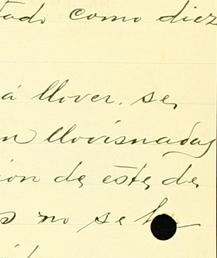 tado como diez
á llover, se
n llovisnadas
ión de este, de
s no se